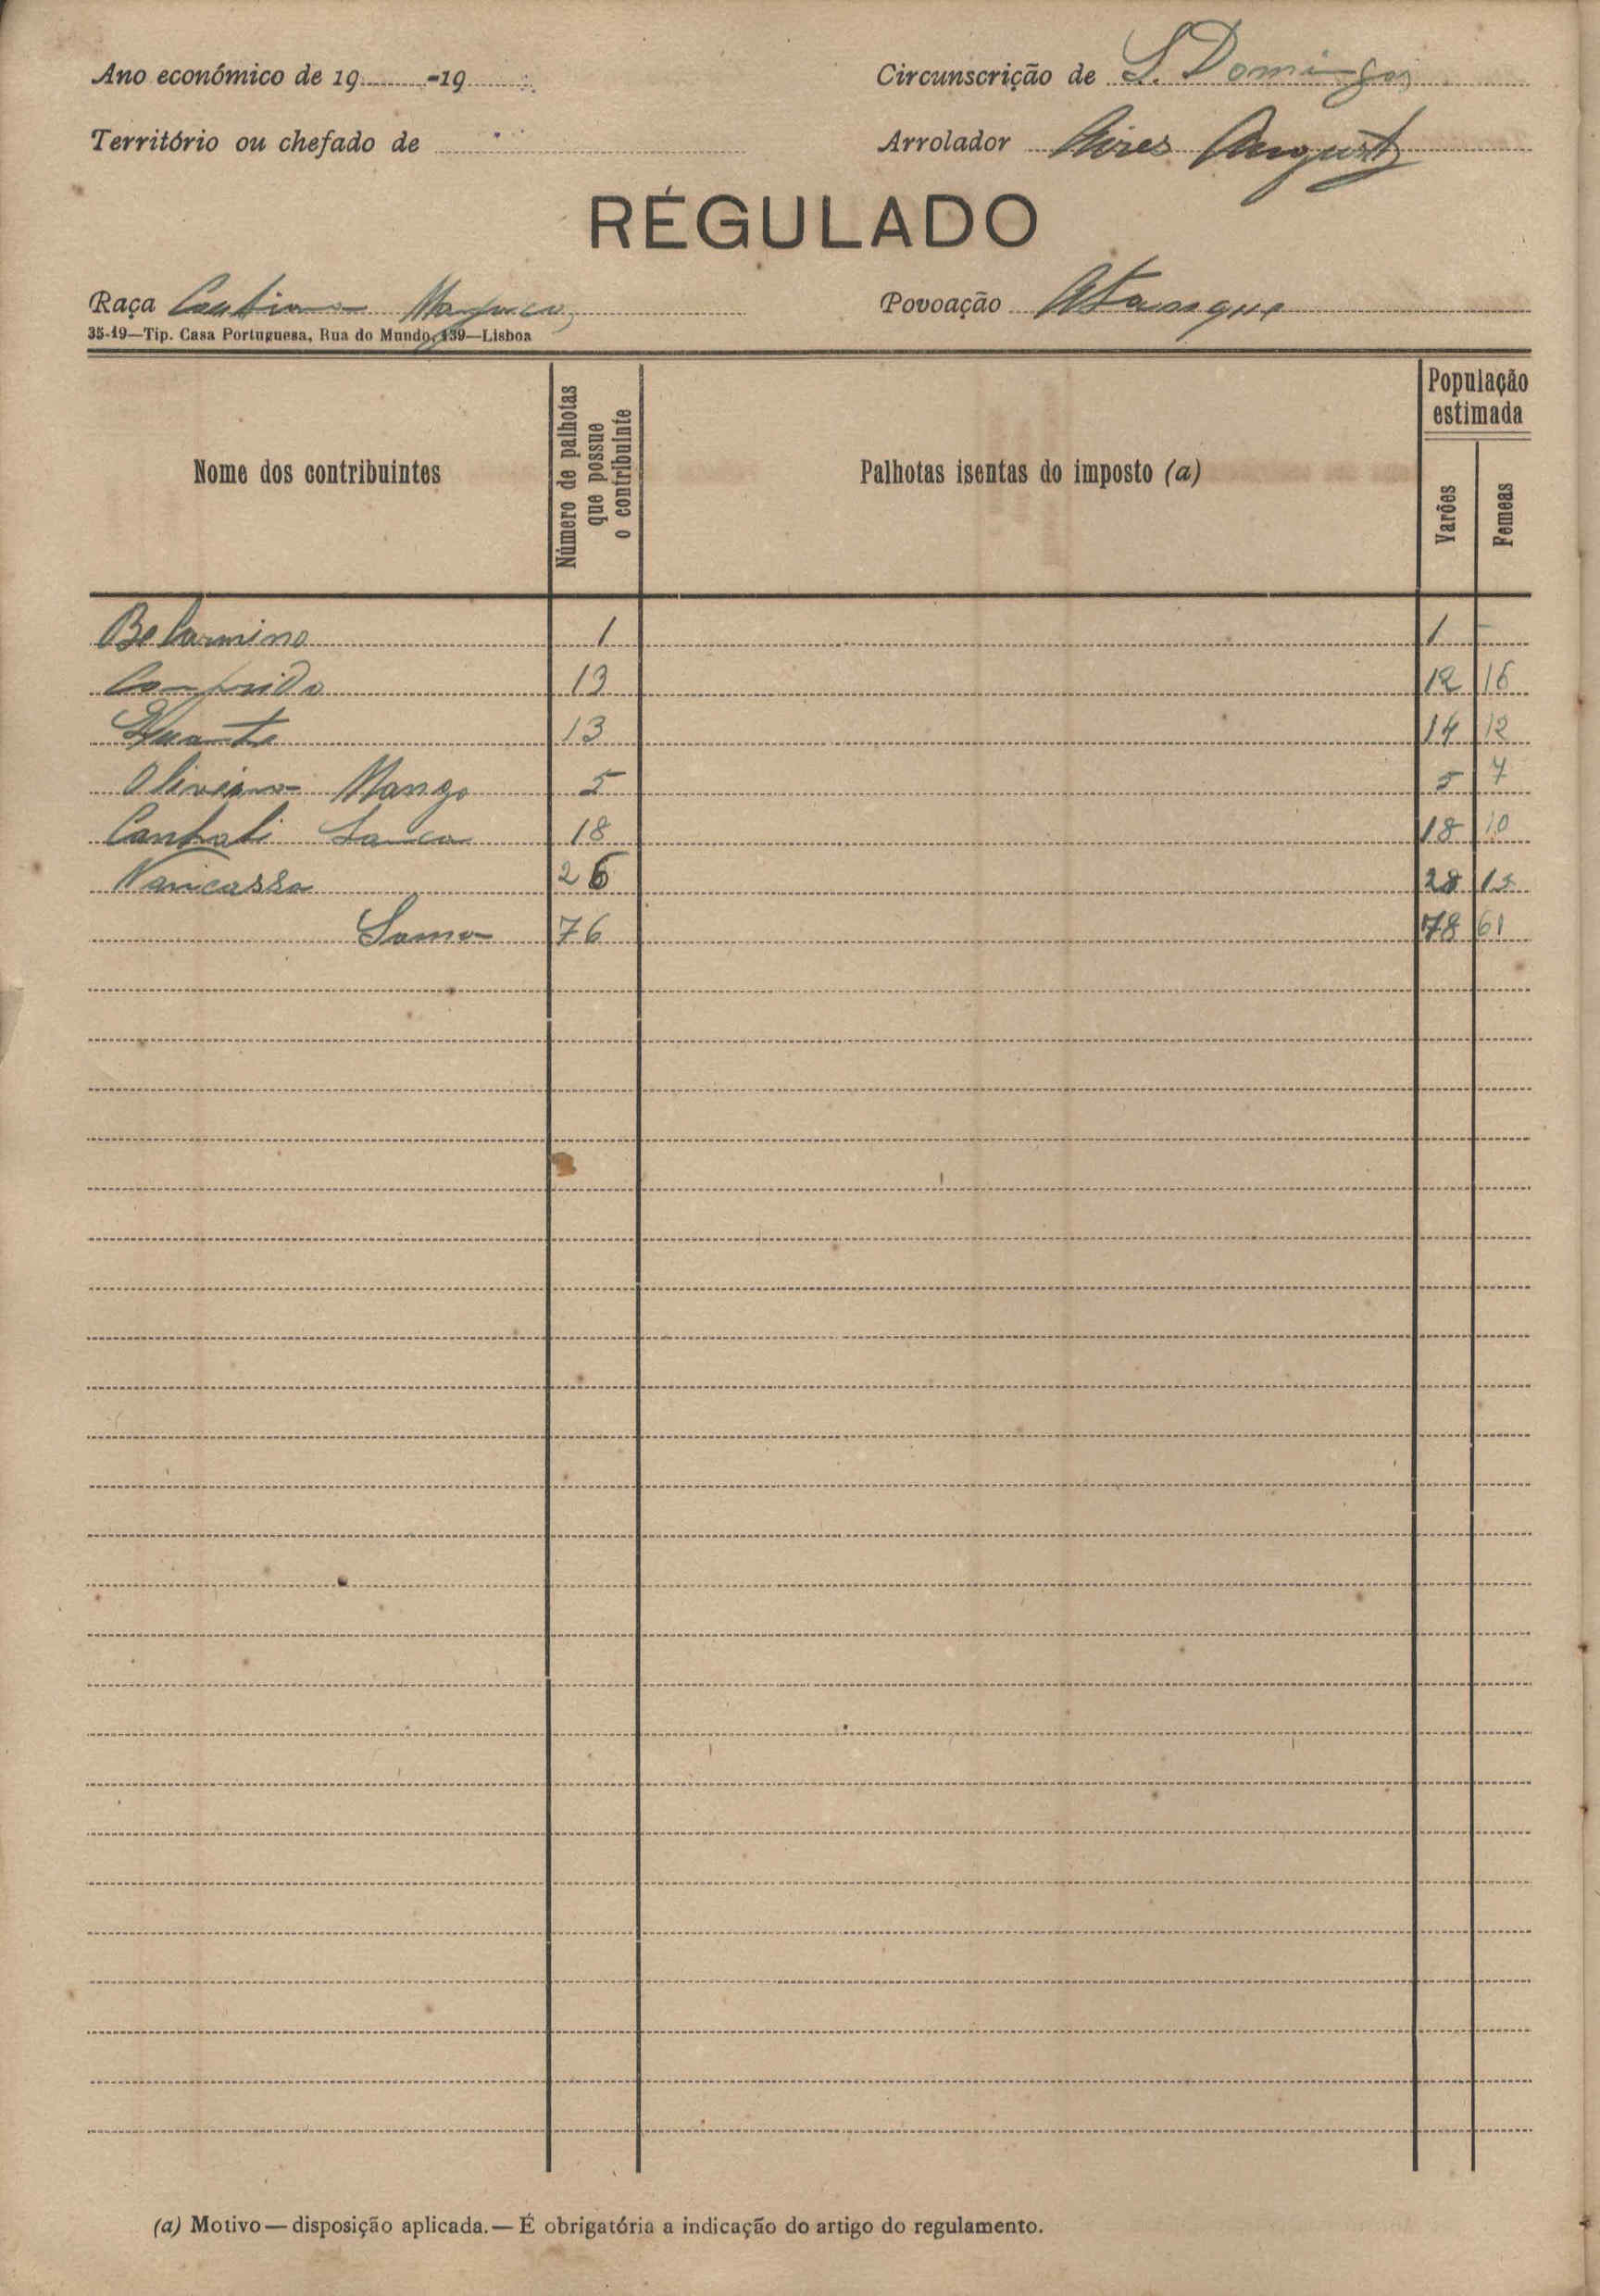 Ano económico de 19 -19
Circunscrição de S. Domingos
Território ou chefado de
Arrolador Aires Augusto
RÉGULADO
Raça
Povoação
35-19—Tip. Casa Portuguesa, Rua do Mundo, 139—Lisboa
Nome dos contribuintes
Número de palhotas que possue o contribuinte
Palhotas isentas do imposto (a)
População estimada
Varões
Femeas
Belarmino 1 1 -
Comprido 13 12 16
Duarte 13 14 12
Oliveira Mango 5 5 7
18 18 10
Nancassa 26 28
Soma 76 78 61
(a) Motivo—disposição aplicada.—É obrigatória a indicação do artigo do regulamento.